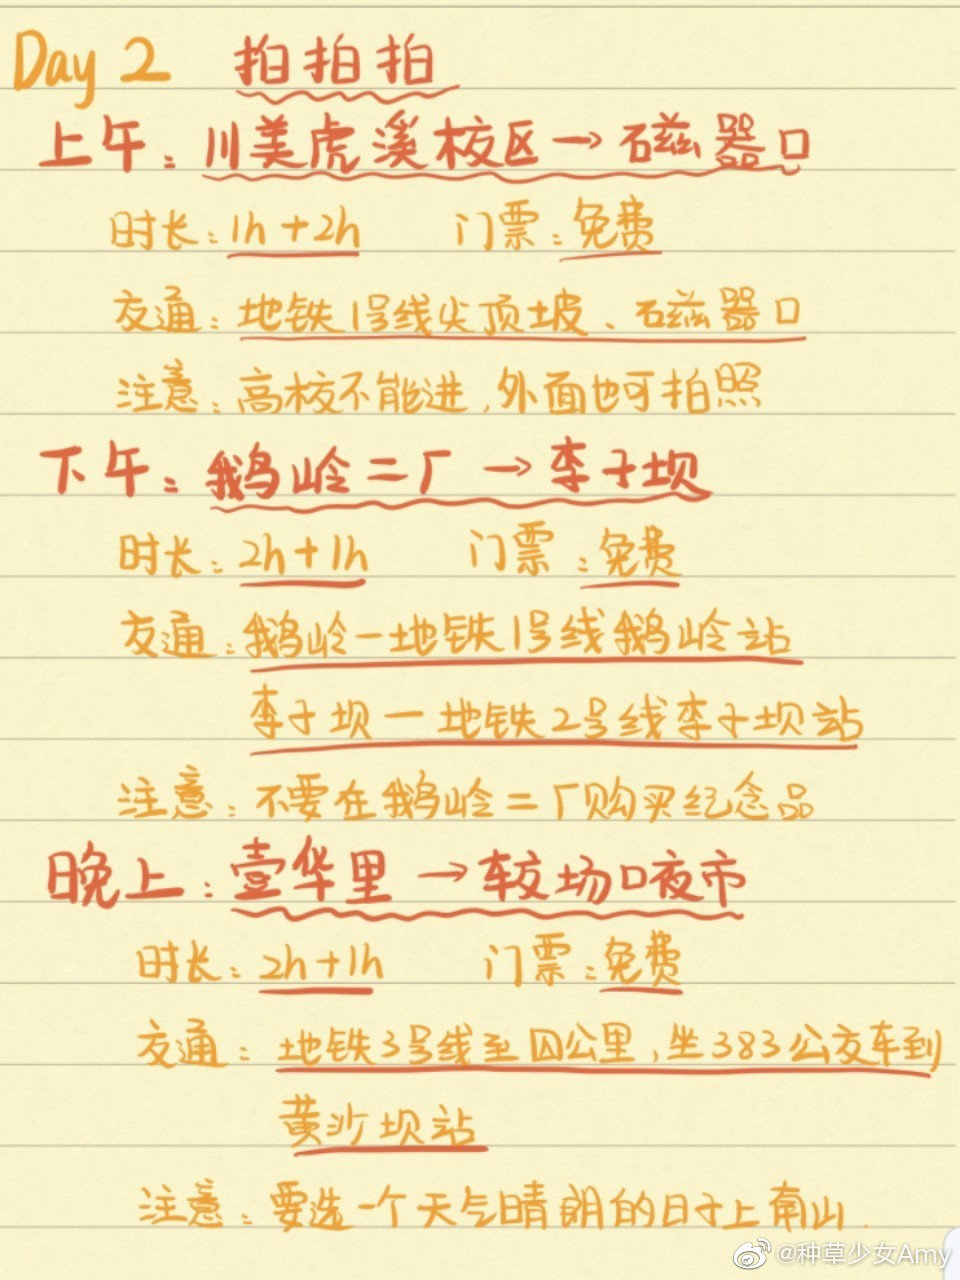 Day 2 拍拍拍
上午：川美虎溪校区→磁器口
时长：1h+2h 门票：免费
交通：地铁1号线尖顶坡、磁器口
注意：高校不能进，外面也可拍照
下午：鹅岭二厂→李子坝
时长：2h+1h 门票：免费
交通：鹅岭—地铁1号线鹅岭站
李子坝—地铁2号线李子坝站
注意：不要在鹅岭二厂购买纪念品
晚上：壹华里→较场口夜市
时长：2h+1h 门票：免费
交通：地铁3号线至四公里，坐383公交车到
黄沙坝站
注意：要选一个天气晴朗的日子上南山.
@种草少女Amy